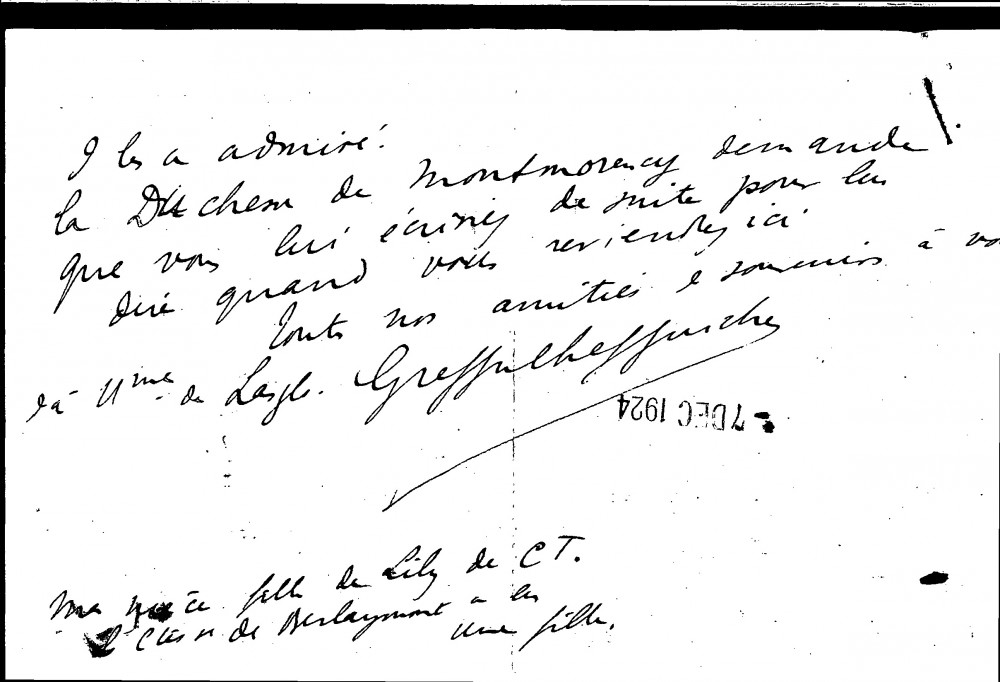 Il les a admiré.
la Duchesse de Montmorency demande
que vous lui écriviez de suite pour lui
dire quand vous reviendrez ici
Toutes nos amitiés & souvenirs à vo
& à Mme de Laigle. Greffulhe
- 7 DEC 1924
ma nièce fille de Lily de C T.
Ctesse de Berlaymont a eu
une fille.